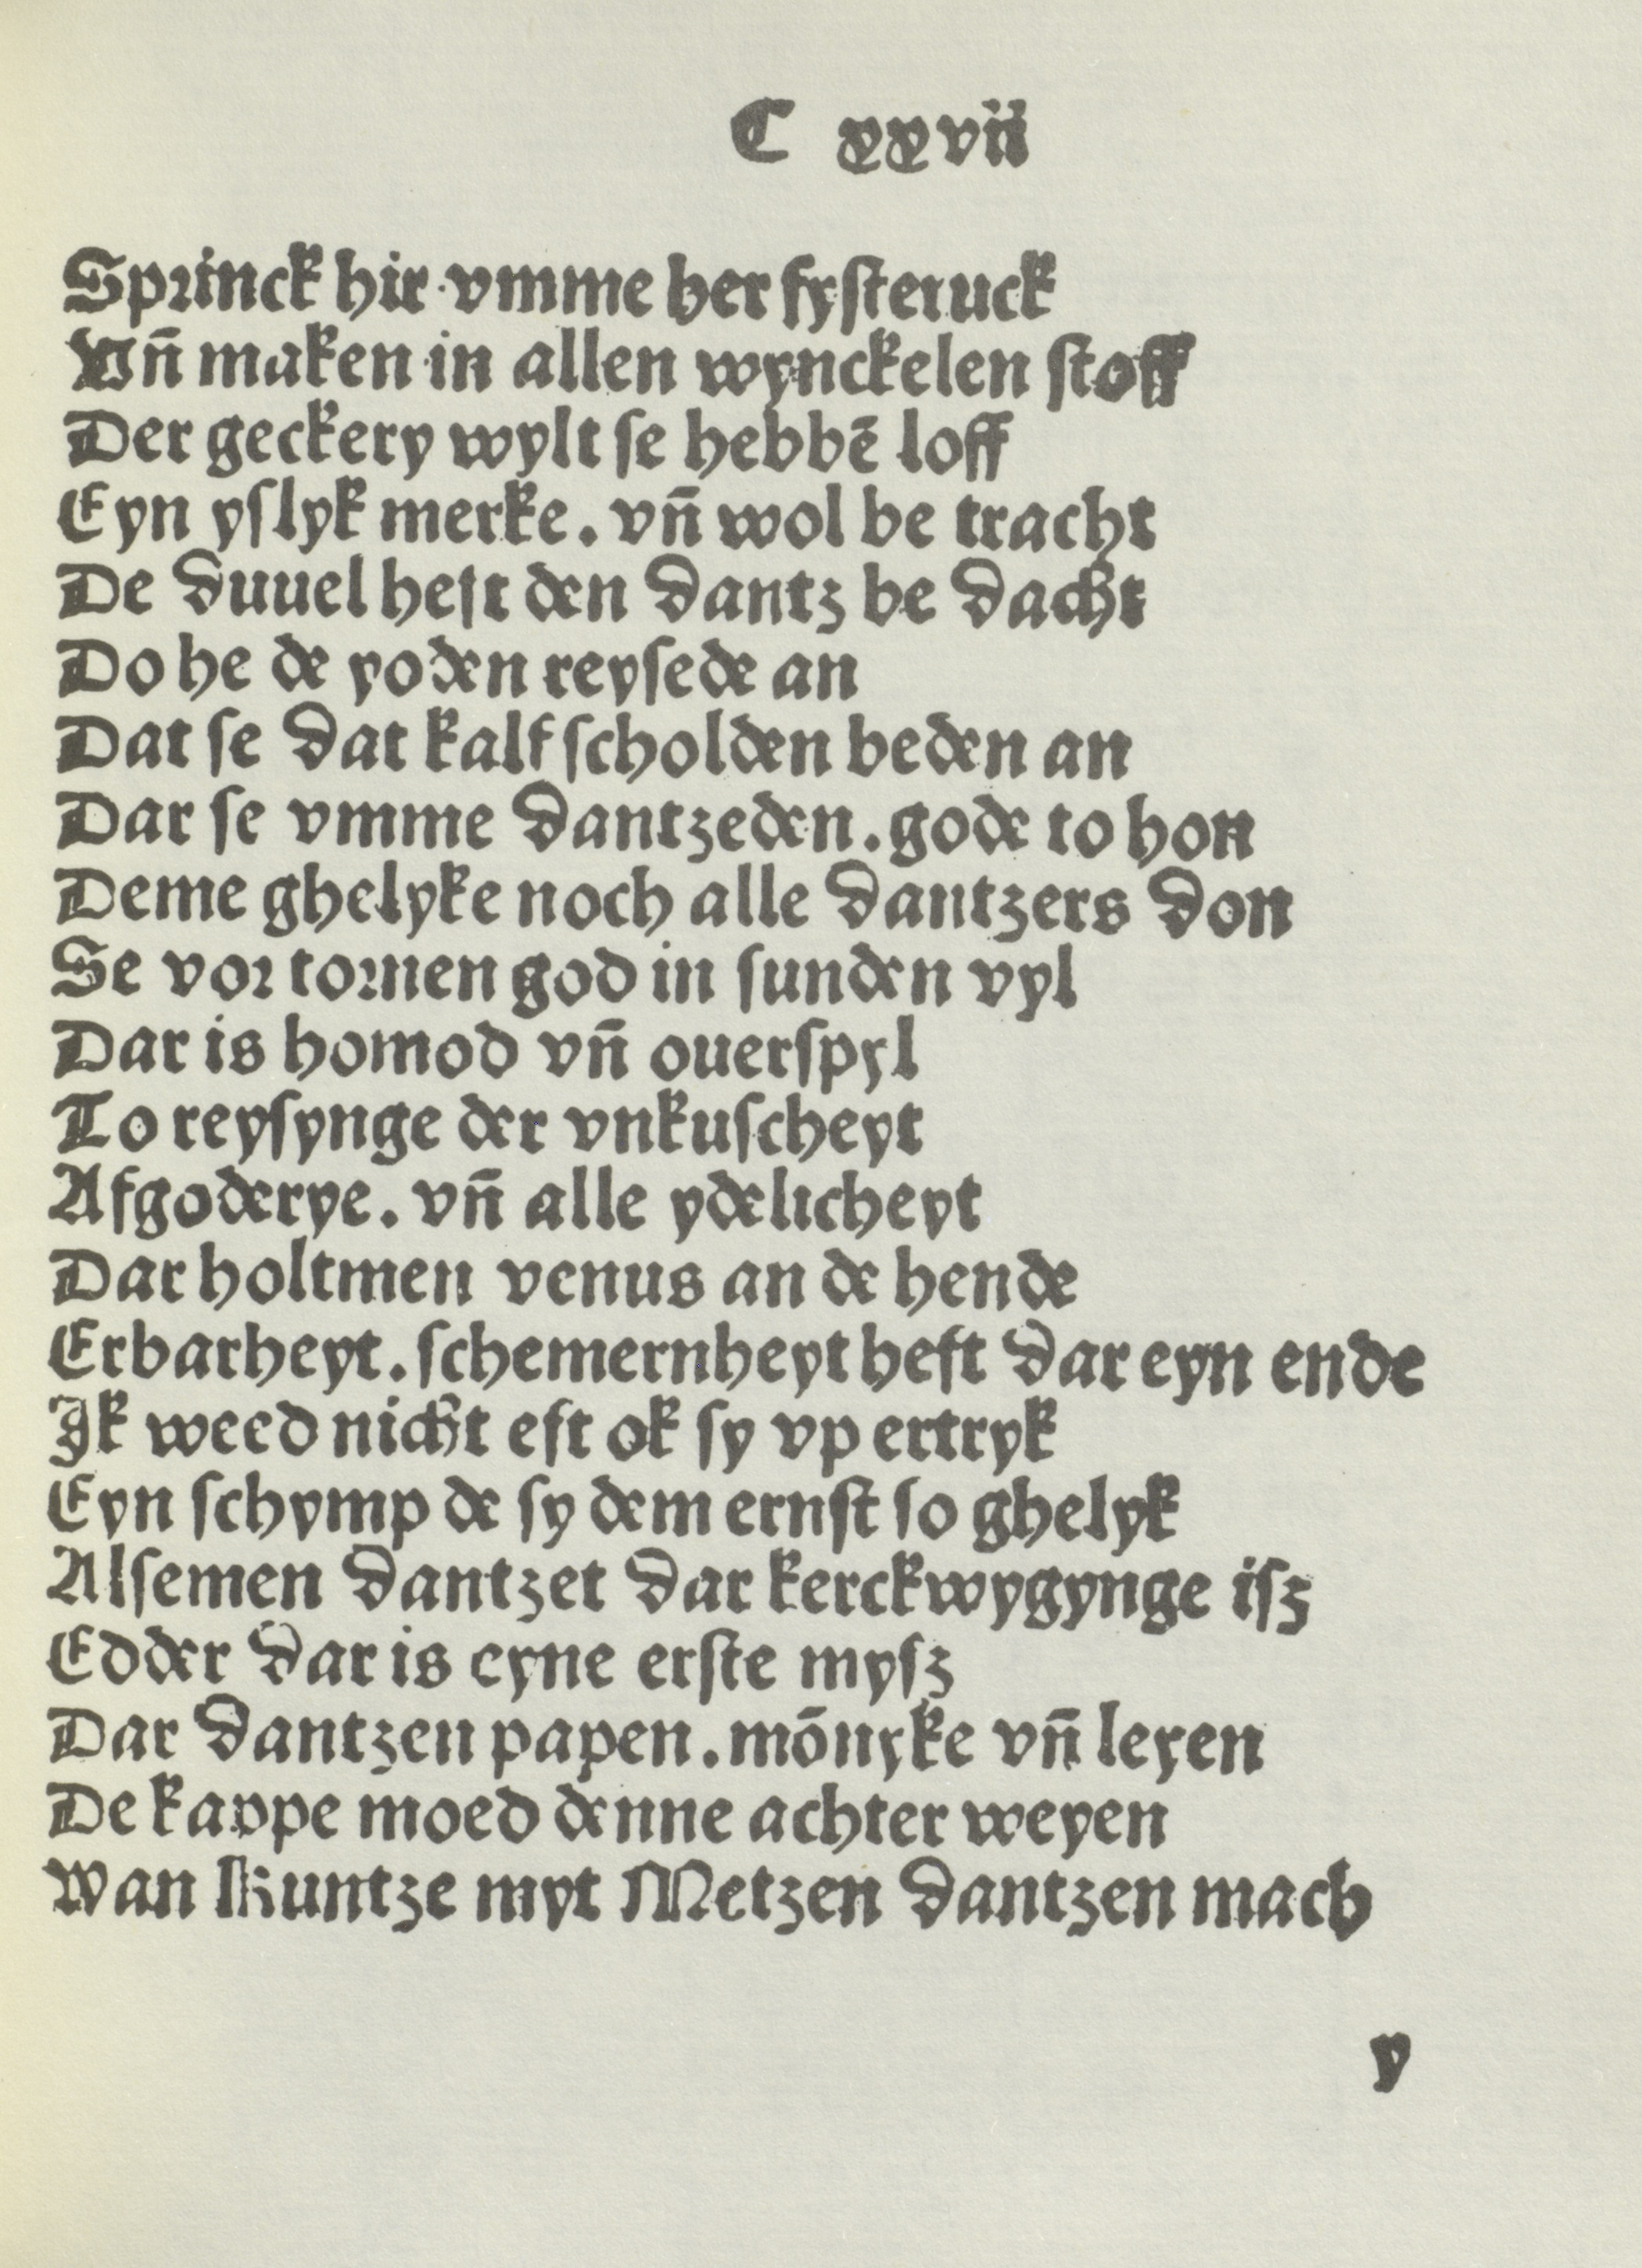 C xxvii
Sprinck hir vmme her fyſteruck
Vn̄ maken in allen wynckelen ſtoff
Der geckery wylt ſe hebbē loff
Eyn yſlyk merke. vn̄ wol be tracht
De duuel heft den dantz be dacht
Do he de yoden reyſede an
Dat ſe dat kalf ſcholden beden an
Dar ſe vmme dantzeden. gode to hon
Deme ghelyke noch alle dantzers don
Se vor tornen god in ſunden vyl
Dar is homod vn̄ ouerſpyl
To reyſynge der vnkuſcheyt
Afgoderye. vn̄ alle ydelicheyt
Dar holtmen venus an de hende
Erbarheyt. ſchemernheyt heft dar eyn ende
Ik weed nicht eft ok ſy vp ertryk
Eyn ſchymp de ſy dem ernſt ſo ghelyk
Alſemen dantzet dar kerckwygynge iſz
Edder dar is eyne erſte myſz
Dar dantzen papen. mōnyke vn̄ leyen
De kappe moed denne achter weyen
Wan Kuntze myt Metzen dantzen mach
y